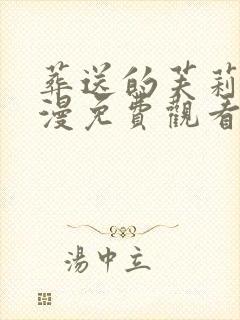 葬送的芙莉
漫免費觀看
湯中立